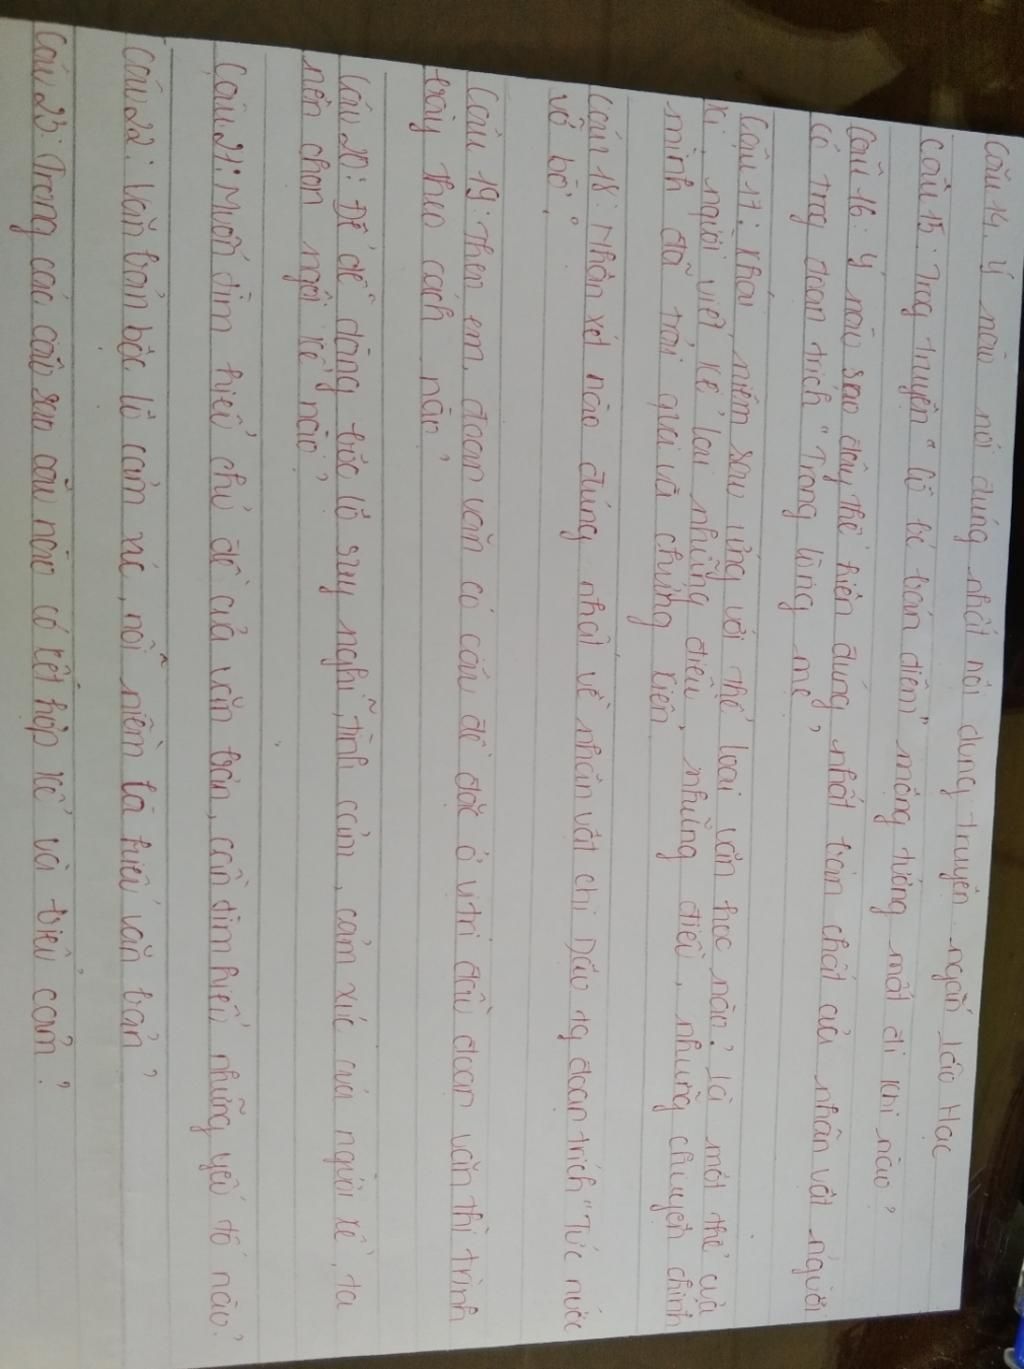 Câu 14. Ý nào nói đúng nhất nội dung truyện ngắn Lão Hạc
Câu 15: Trog truyện "Cô bé bán diêm" mộng tưởng mất đi khi nào?
Câu 16: Ý nào sao đây thể hiện đúng nhất bản chất của nhân vật người
Cô trog đoạn trích "Trong lòng mẹ?
Câu 17: Khái niệm sau ứng với thể loại văn học nào? Là một thể của
kí, người viết kể lại những điều, những điều, những chuyện chính
mình đã trải qua và chứng kiến.
Câu 18: Nhận xét nào đúng nhất về nhân vật chị Dậu tg đoạn trích "Tức nước
vỡ bờ"?
Câu 19: Theo em, đoạn văn có câu đề đặt ở vị trí đầu đoạn văn thì trình
bày theo cách nào?
Câu 20: Để dễ dàng bộc lộ suy nghĩ, tình cảm, cảm xúc của người kể, ta
nên chọn ngôi kể nào?
Câu 21: Muốn tìm hiểu chủ đề của văn bản, cần tìm hiểu những yếu tố nào?
Câu 22: Văn bản bộc lộ cảm xúc, nỗi niềm là kiểu văn bản?
Câu 23: Trong các câu sau câu nào có kết hợp kể và biểu cảm?